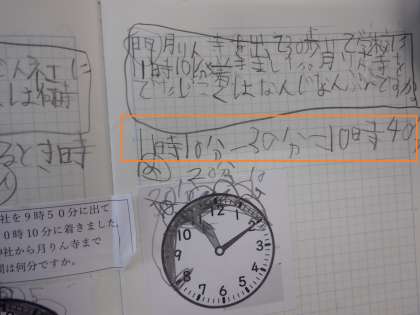 (問)月りん寺を出て30歩行で神社に
11時10分着きました。月りん寺を
でたじこくはなんじなんぷんですか。
11時10分-30分=10時40
ん社に
は何時
るとき時
社を9時50分に出て
0時10分に着きました
神社から月りん寺まで
間は何分ですか。
12
11
1
10
2
9
3
8
4
7
5
6